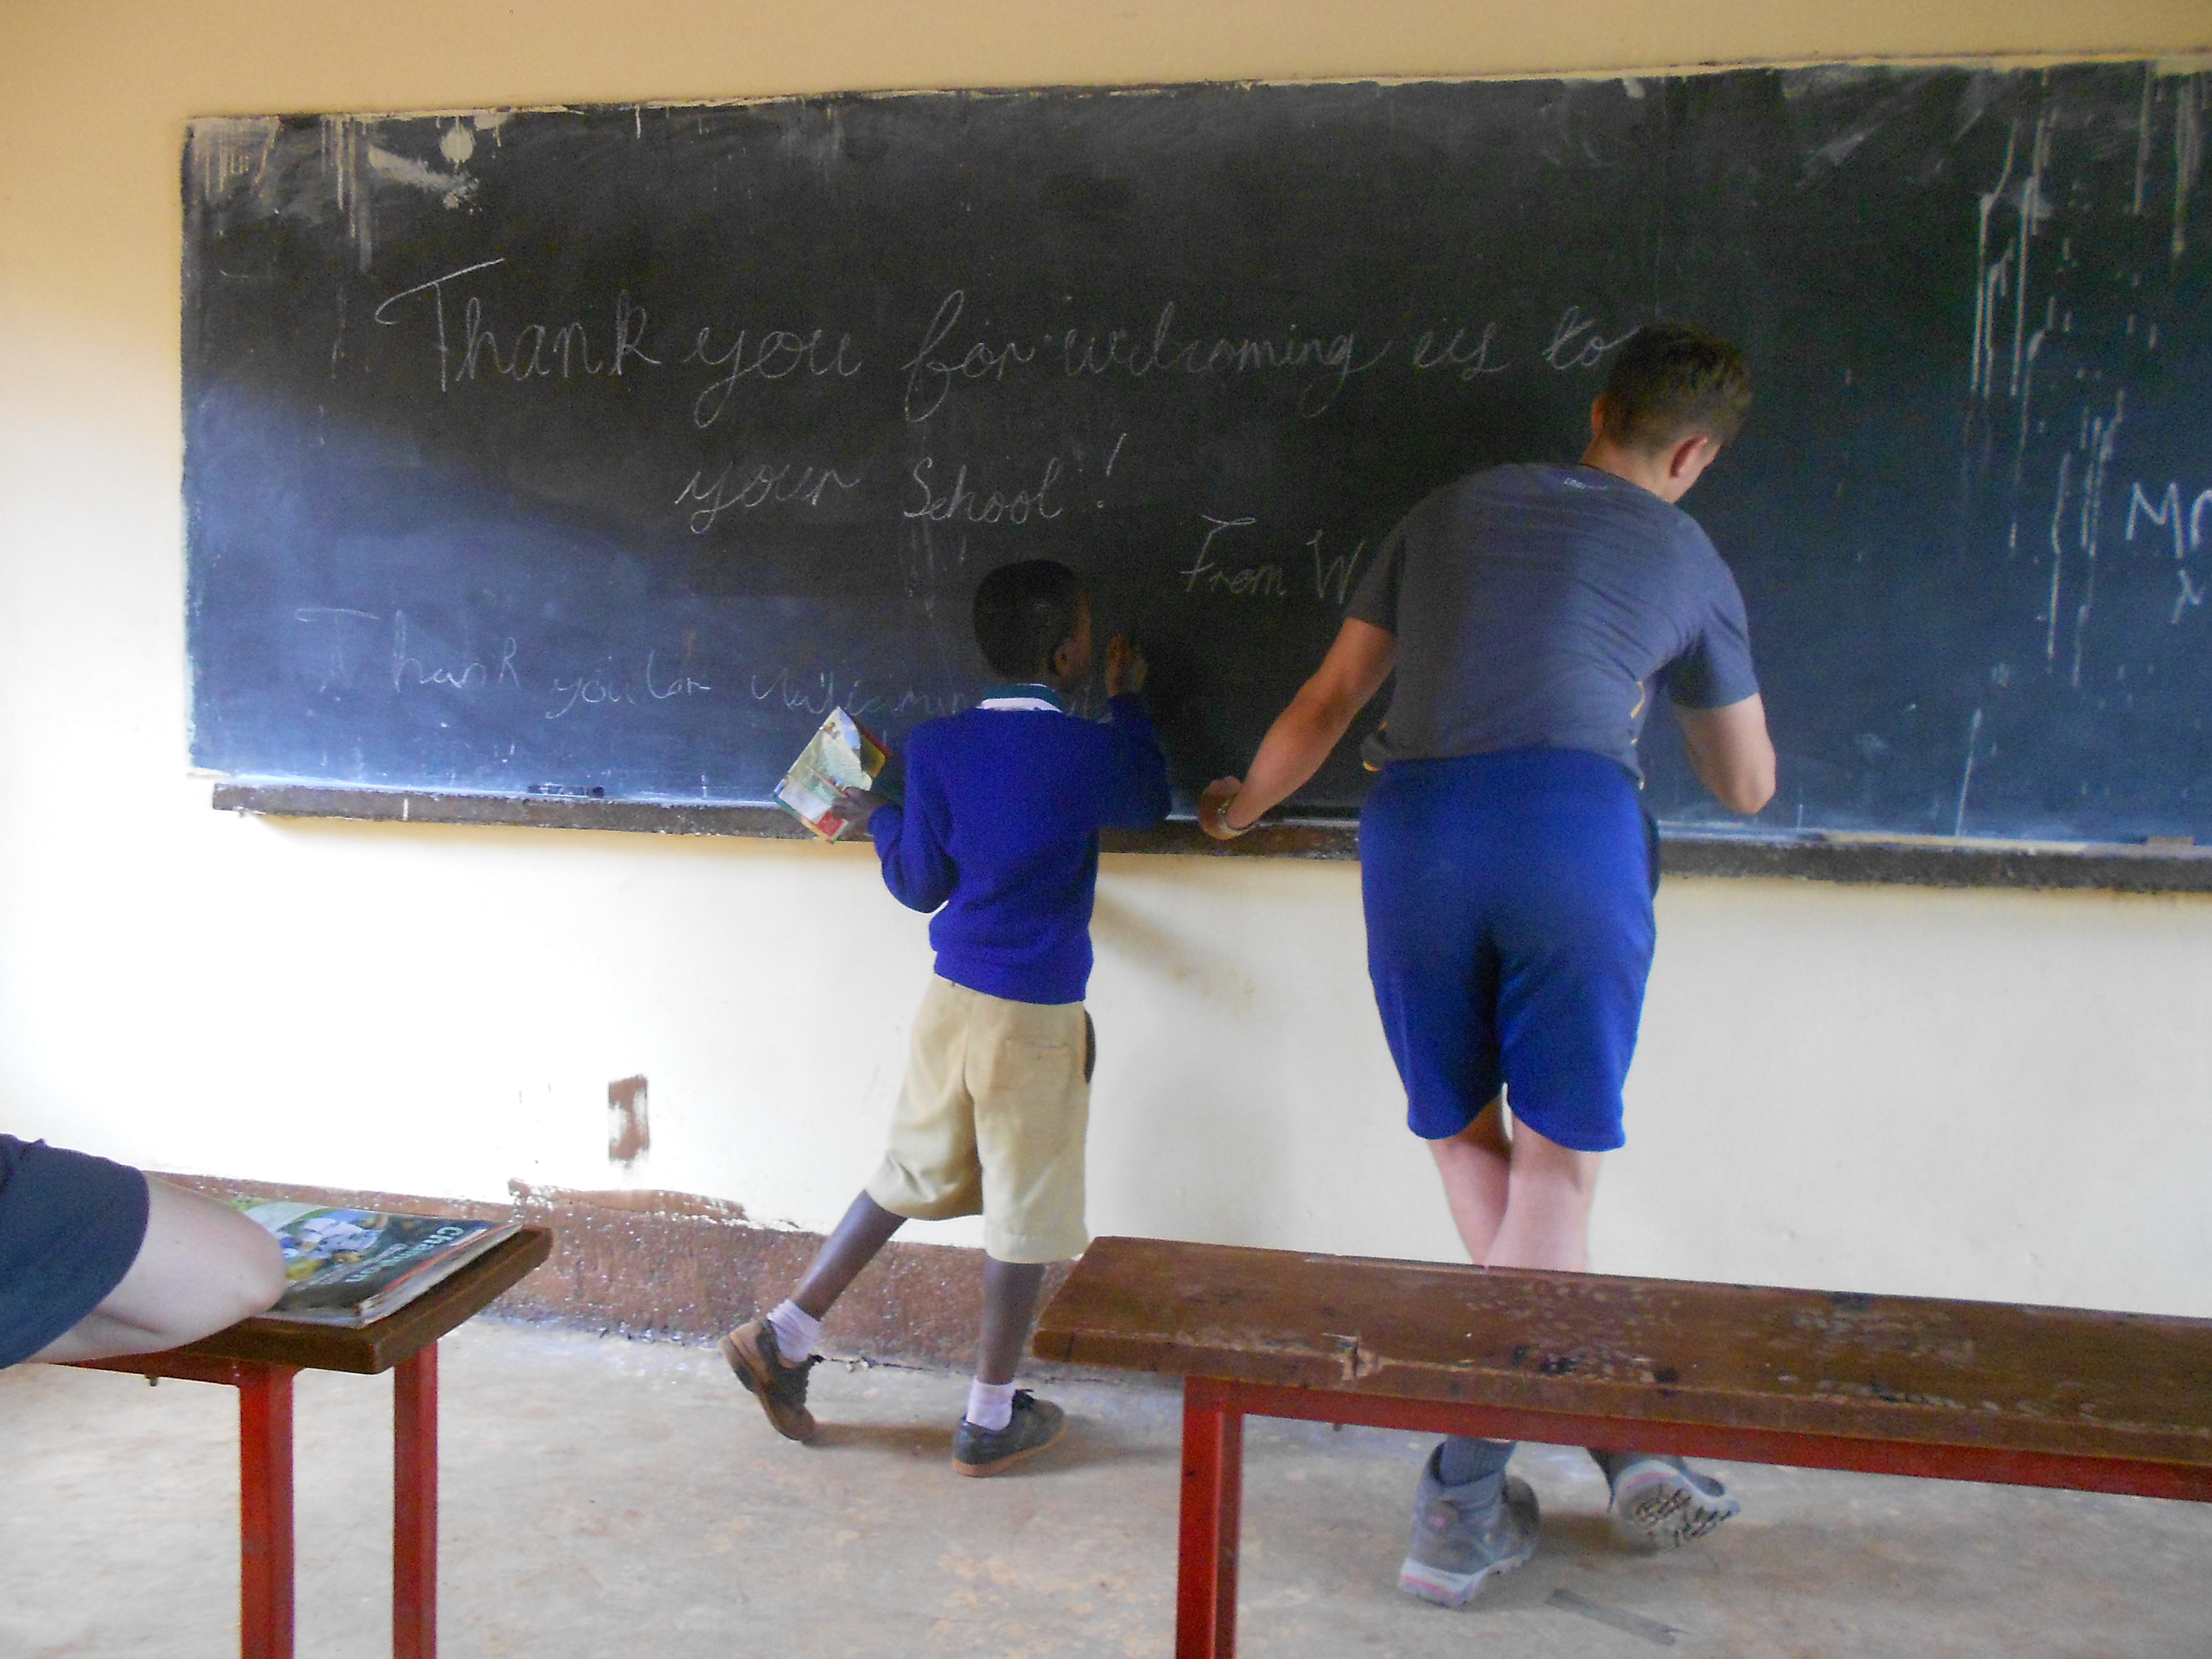 Thank you for welcoming us to
your School!
From W
Thank you for
Mr
x